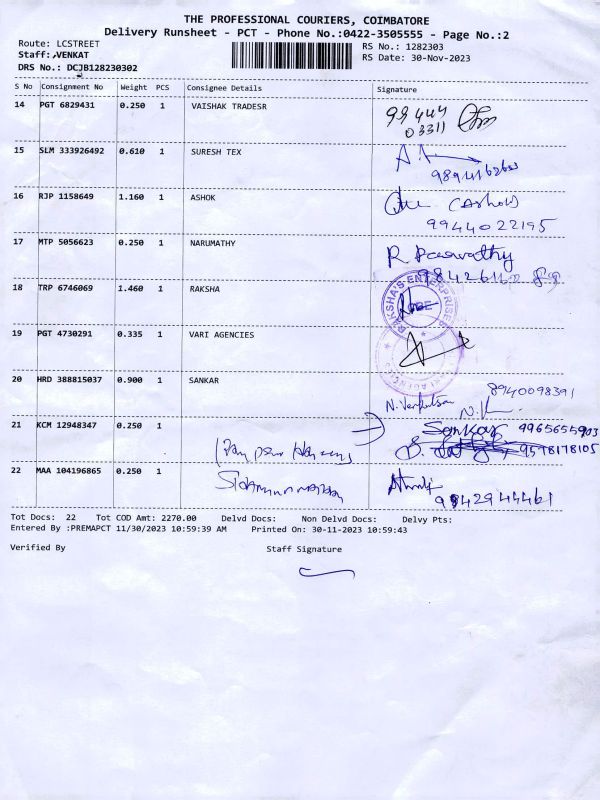 THE PROFESSIONAL COURIERS, COIMBATORE
Delivery Runsheet - PCT - Phone No.:0422-3505555 - Page No.:2
Route: LCSTREET RS No.: 1282303
Staff: VENKAT RS Date: 30-Nov-2023
DRS No.: DCJB128230302
S No Consignment No Weight PCS Consignee Details Signature
14 PGT 6829431 0.250 1 VAISHAK TRADESR 99444
03311
15 SLM 333926492 0.610 1 SURESH TEX
16 RJP 1158649 1.160 1 ASHOK (Ashok)
9944022195
17 MTP 5056623 0.250 1 NARUMATHY R Paarvathy
18 TRP 6746069 1.460 1 RAKSHA RAKSHA'S ENTERPRISES
CBE
19 PGT 4730291 0.335 1 VARI AGENCIES
20 HRD 388815037 0.900 1 SANKAR 8940098391
N. Venkatesan
21 KCM 12948347 0.250 1 Sankar 9965655903
9578178105
22 MAA 104196865 0.250 1
9842944461
Tot Docs: 22 Tot COD Amt: 2270.00 Delvd Docs: Non Delvd Docs: Delvy Pts:
Entered By :PREMAPCT 11/30/2023 10:59:39 AM Printed On: 30-11-2023 10:59:43
Verified By Staff Signature